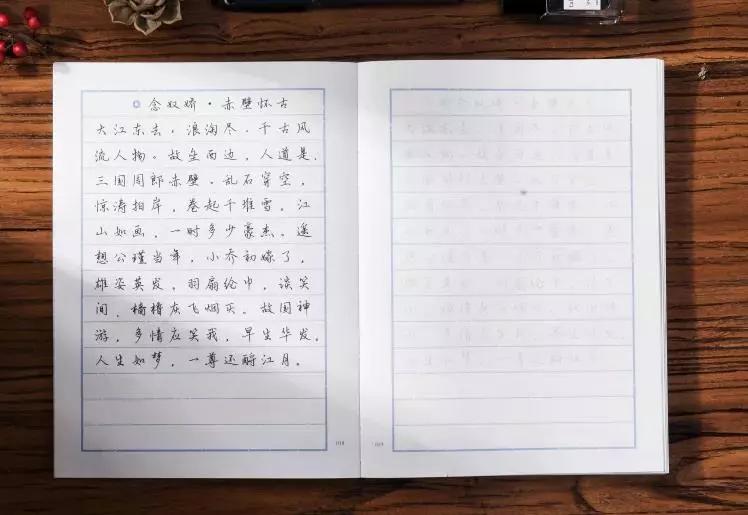 念奴娇·赤壁怀古
大江东去，浪淘尽．千古风
流人物。故垒西边，人道是．
三国周郎赤壁．乱石穿空，
惊涛拍岸，卷起千堆雪．江
山如画，一时多少豪杰。遥
想公瑾当年，小乔初嫁了，
雄姿英发，羽扇纶巾，谈笑
间，樯橹灰飞烟灭．故国神
游，多情应笑我，早生华发．
人生如梦，一尊还酹江月。